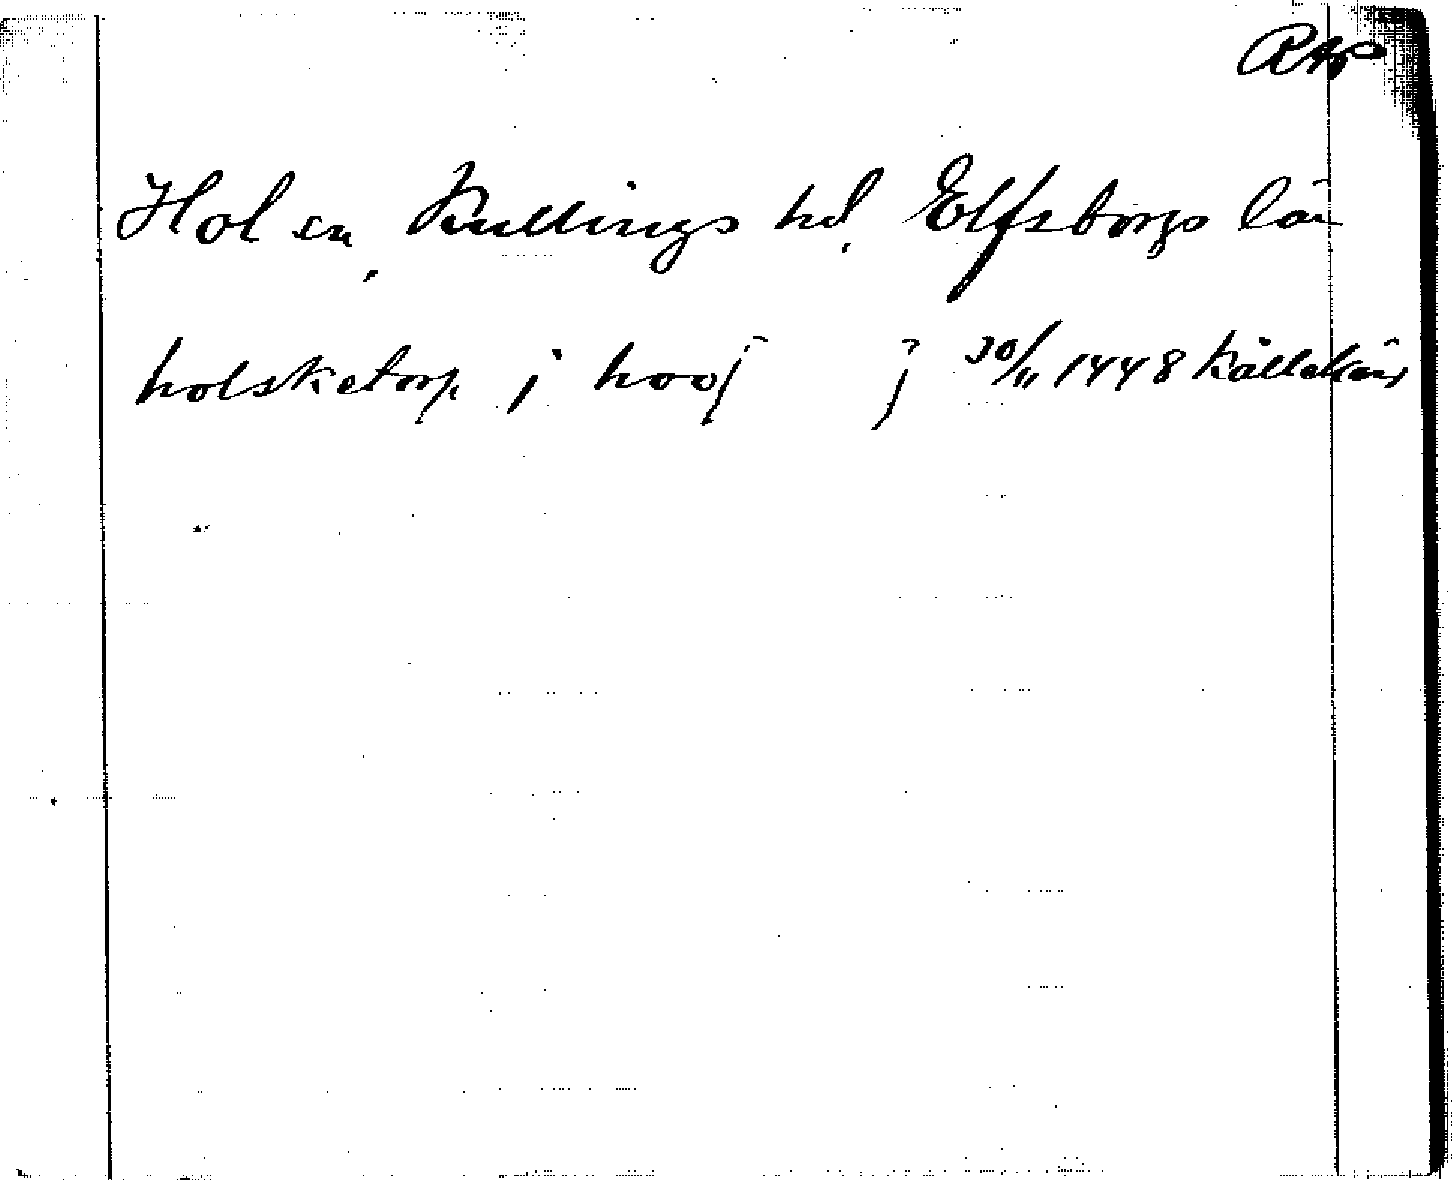 RAp
Hol sn, Kullings hd. Elfsborgs län
holsketorp j hooſ j 30/11 1448